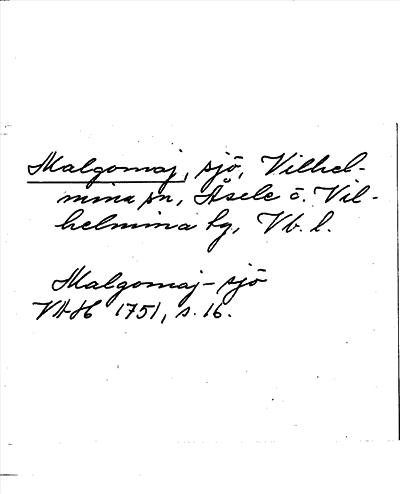 Malgomaj, sjö, Vilhel-
mina sn, Åsele o. Vil-
helmina tg, Vb. l.
Malgomaj-sjö
VAH 1751, s. 16.